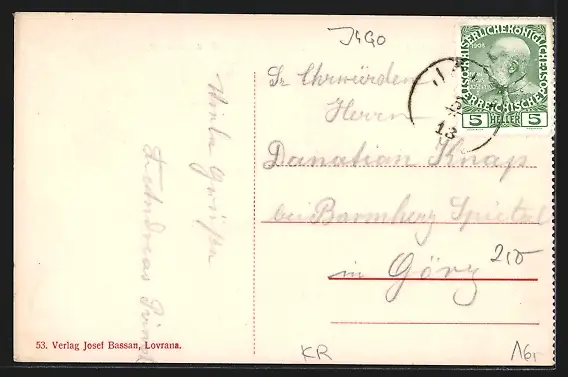 J490
KAISERLICHE KÖNIGLICHE
1908
ÖSTERREICHISCHE
5 HELLER 5
13
Sr Ehrwürden
Herrn
Donatian Knap
bei Barmherz Spietal
in Görz
2,50
Viele Grüße
Fr Andreas
53. Verlag Josef Bassan, Lovrana.
KR
16,